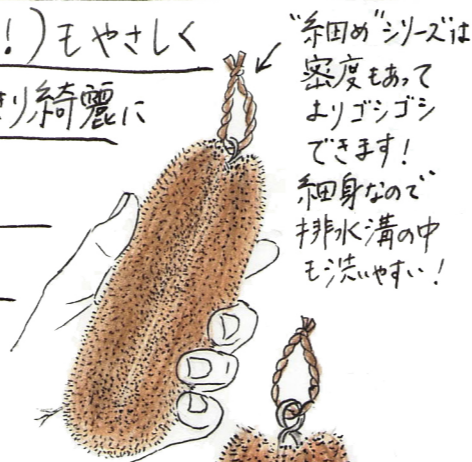 !)もやさしく
り綺麗に
"細め"シリーズは
密度もあって
よりゴシゴシ
できます!
細身なので
排水溝の中
も洗いやすい!